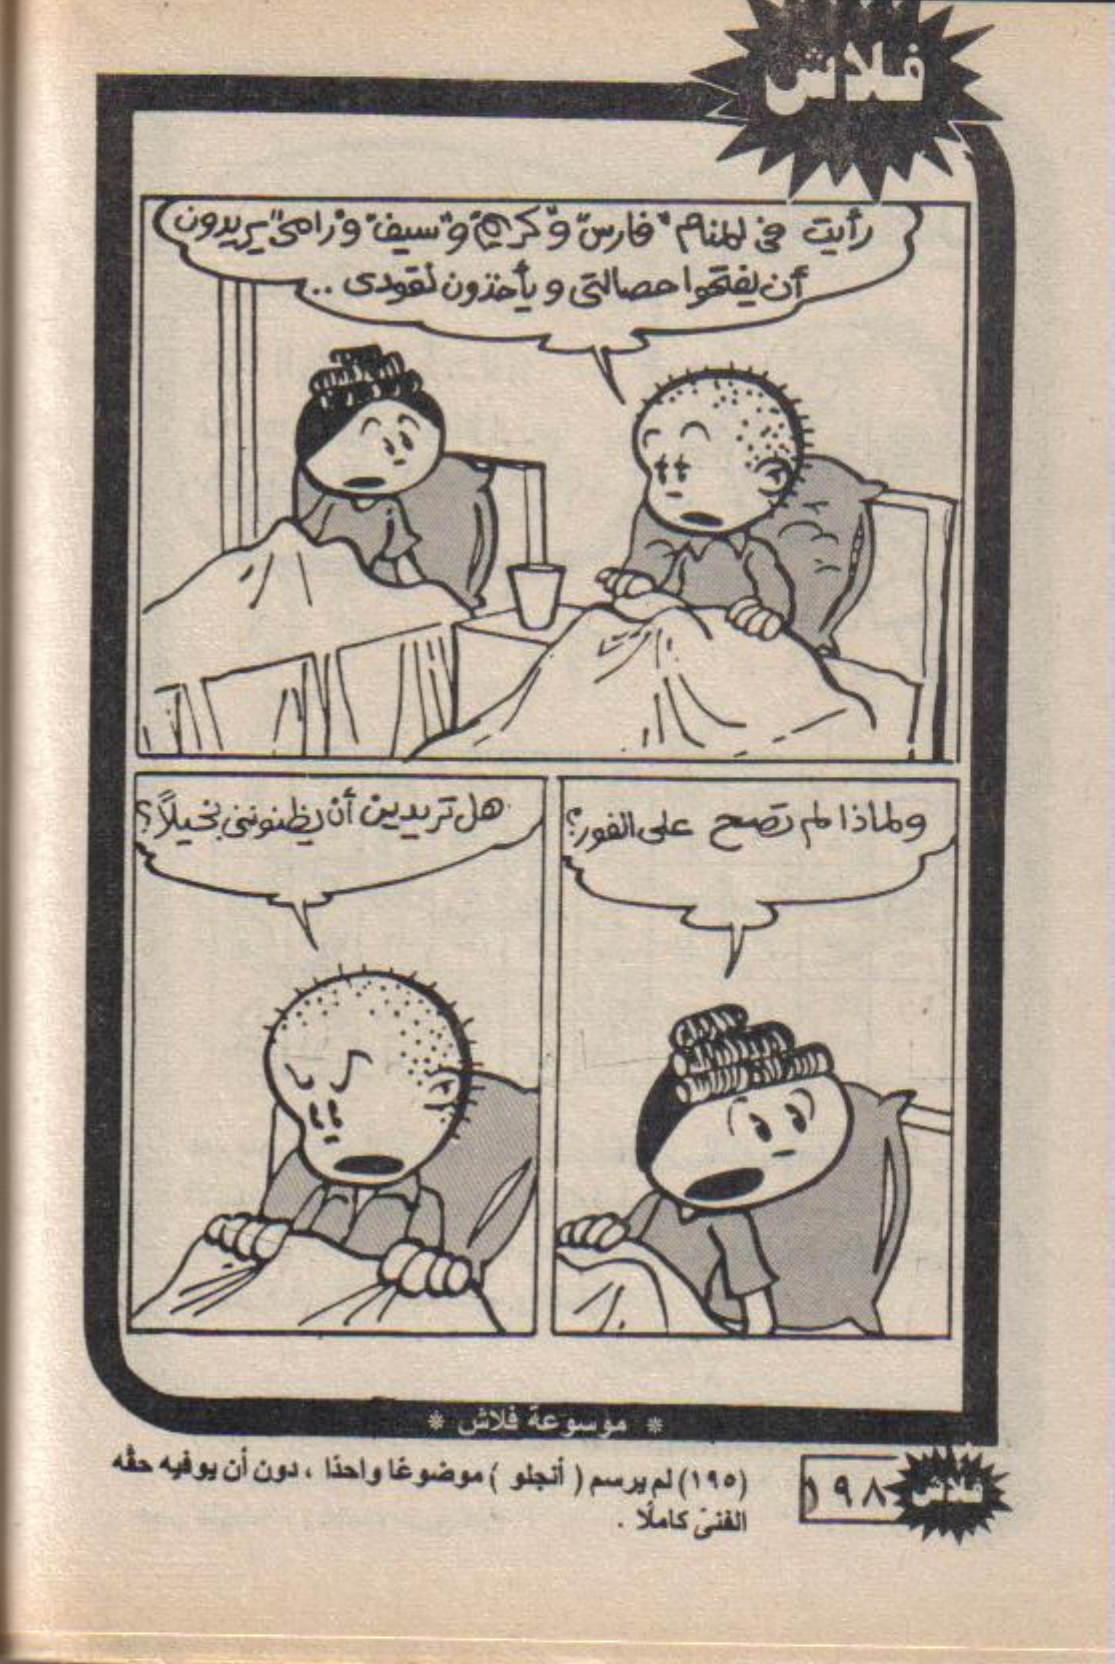 فلاش
رأيت في المنام "فارس" و"كريم" و"سيف" و"رامى" يريدون
أن يفتحوا حصالتى و يأخذون نقودى ..
ولماذا لم تصح على الفور؟
هل تريدين أن يظنوننى بخيلاً؟
* موسوعة فلاش *
فلاش
١٩٨
(١٩٥) لم يرسم ( أنجلو ) موضوعًا واحدًا ، دون أن يوفيه حقه
الفنىّ كاملًا .